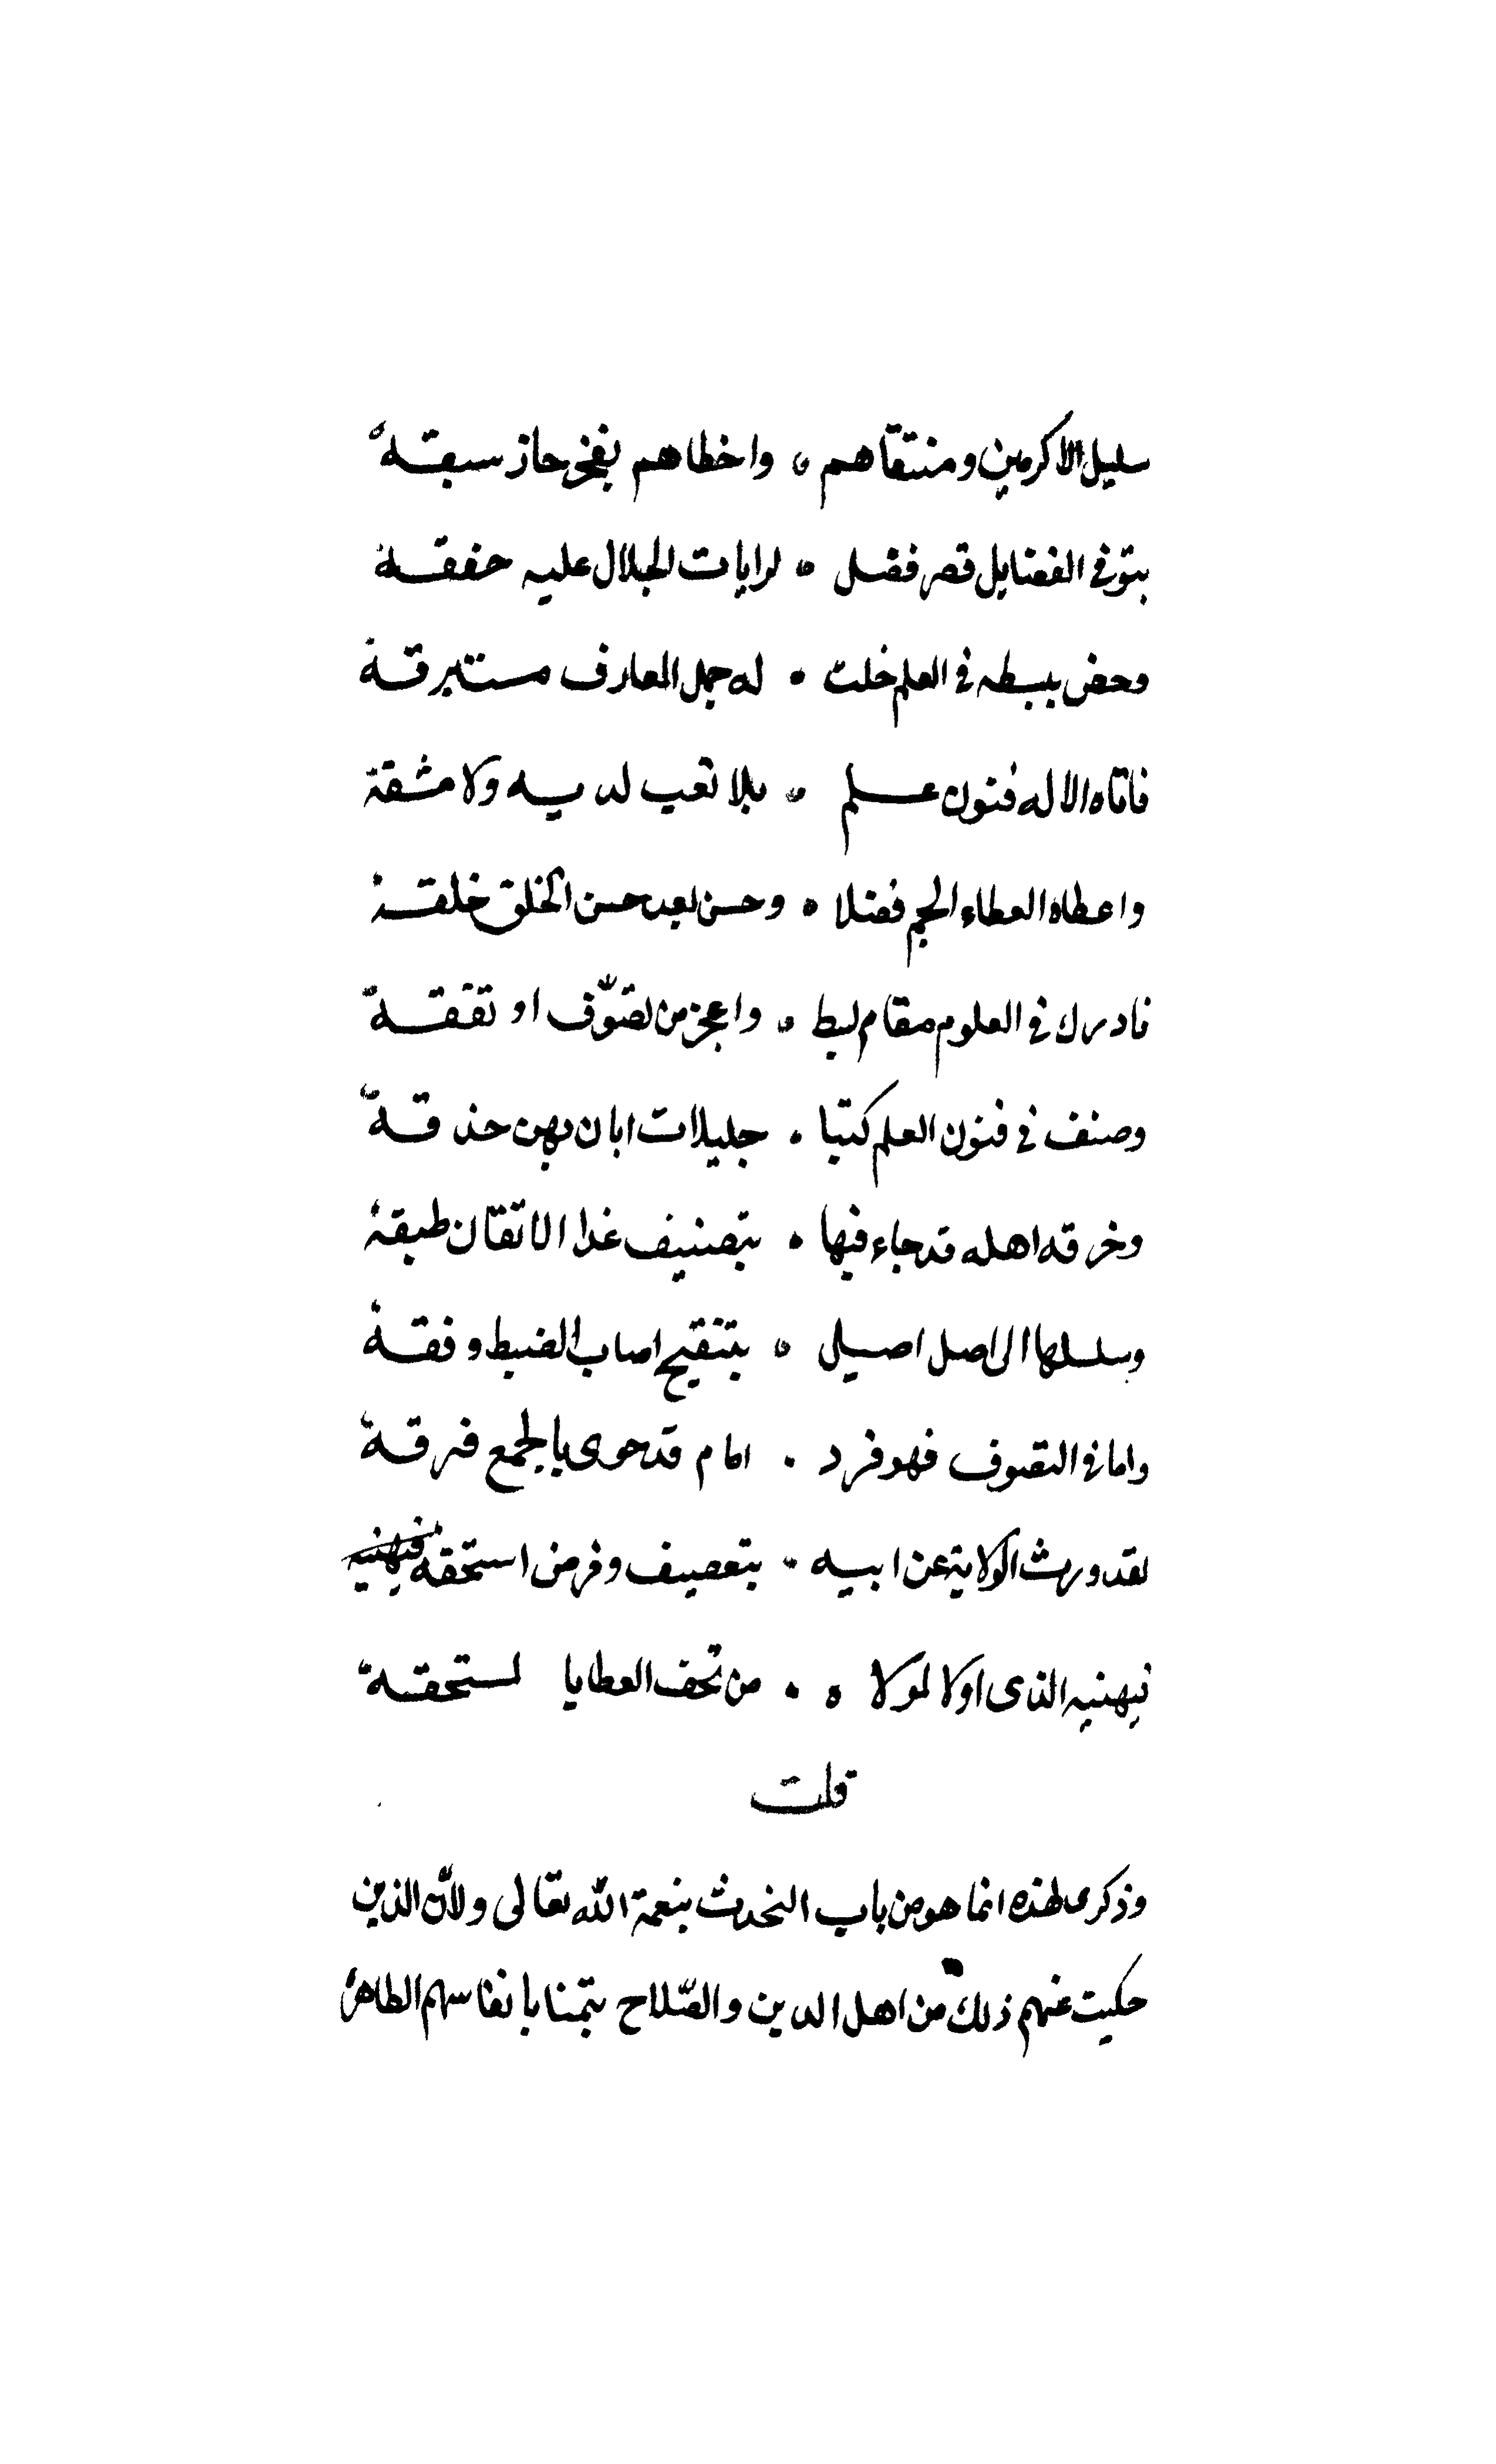 سليل الاكرمين ومنتقاهم ، واخطاهم بفخر حاز سبقه
بتوفي الفضايل قصر فضل ، لرايات الجلال عليه خفقه
وحض ببسطه في العلم خلت ، له جمل المعارف مستبرقة
فاتاه الاله فنون علم ، بلا تعب لديه ولا مشقة
واعطاه العطاء الجم فضلا ، وحسن بعد حسن الخلق خلقه
فادرك في العلوم مقام بسط ، واعجز من تصوّف او تفقه
وصنف في فنون العلم كتبا ، جليلات ابان بهن حذقه
وخرقه اهله قد جاء فيها ، بتصنيف غدا الاتقان طبقه
وسلسلها الى اصل اصيل ، بتنقيح اصاب الضبط وفقه
واما في التصوف فهو فرد ، امام قد حوى بالجمع فرقة
لقد ورث الولاية عن ابيه ، بتعصيف وفرض استحقه فيهنيه
فيهنيه الذي اولا لمولا ، من تحف العطايا لمستحقه
قلت
وذكرى لهذه انما هو من باب التحدث بنعمة الله تعالى ولأن الذين
حكيت عنهم ذلك من اهل الدين والصّلاح بتمنا بانفاسهم الطاهرة